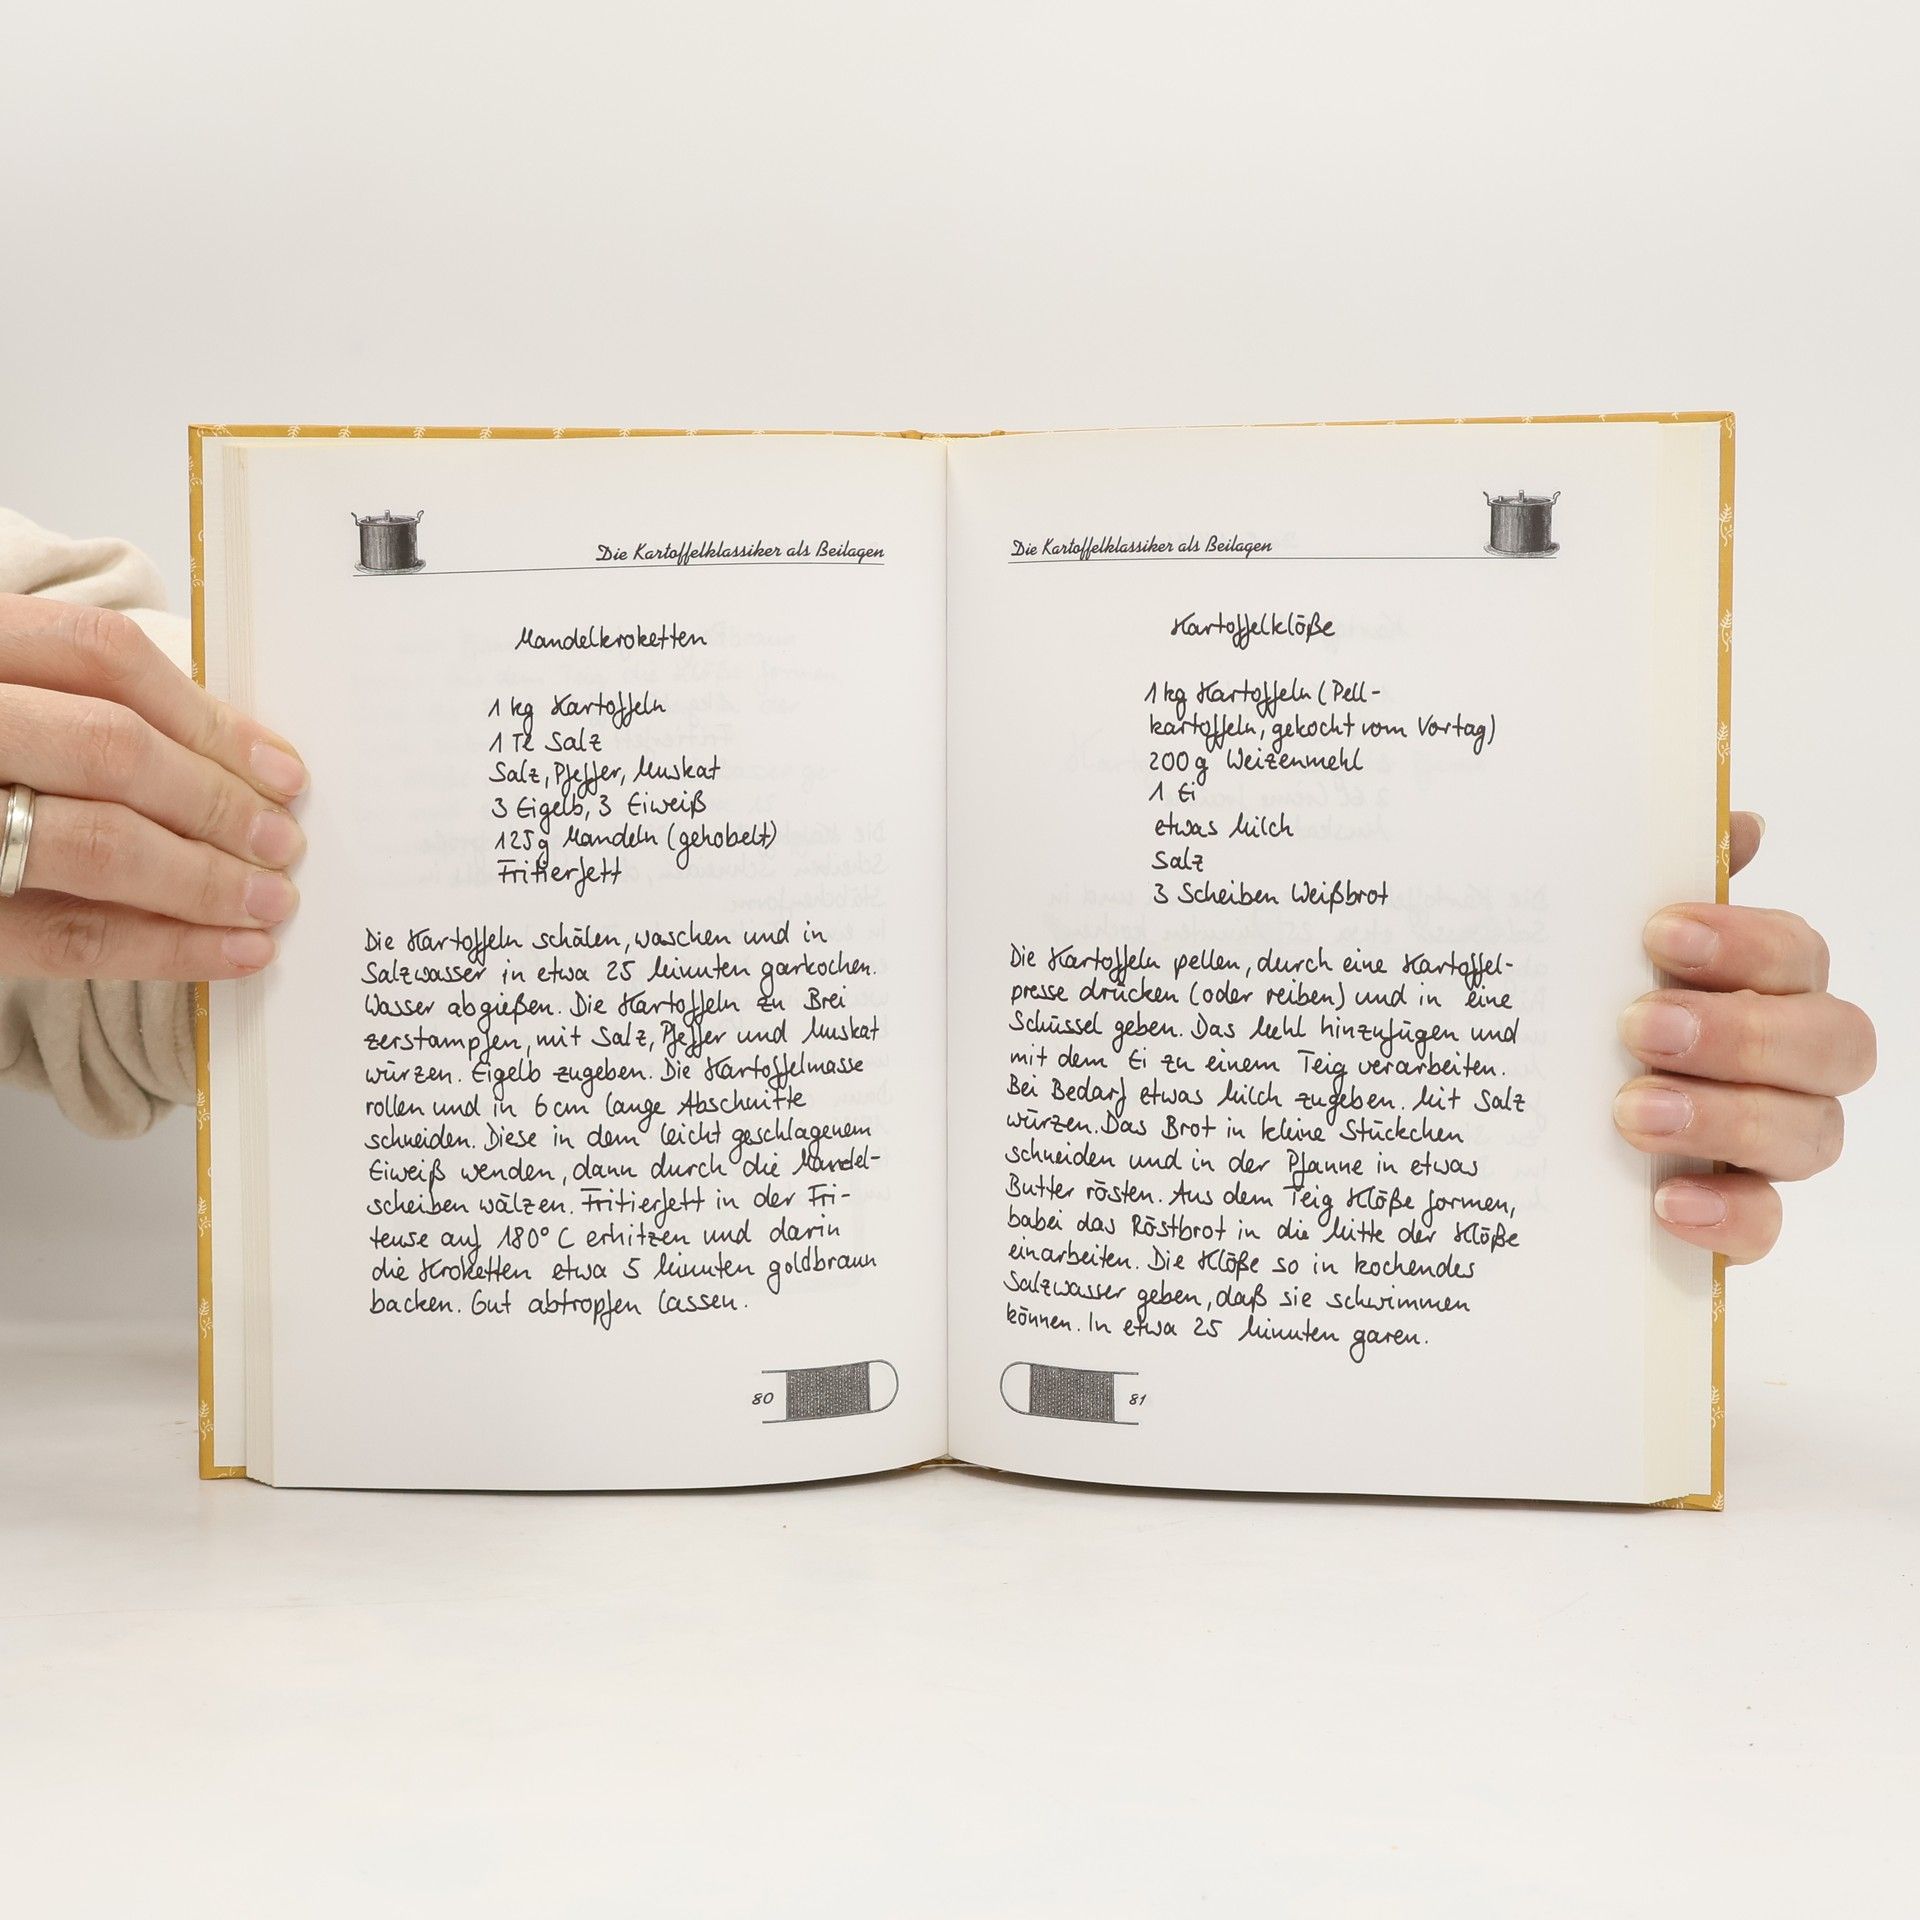 Die Kartoffelklassiker als Beilagen
Mandelkroketten
1 kg Kartoffeln
1 Tl Salz
Salz, Pfeffer, Muskat
3 Eigelb, 3 Eiweiß
125g Mandeln (gehobelt)
Fritierfett
Die Kartoffeln schälen, waschen und in
Salzwasser in etwa 25 Minuten garkochen.
Wasser abgießen. Die Kartoffeln zu Brei
zerstampfen, mit Salz, Pfeffer und Muskat
würzen. Eigelb zugeben. Die Kartoffelmasse
rollen und in 6 cm lange Abschnitte
schneiden. Diese in dem leicht geschlagenem
Eiweiß wenden, dann durch die Mandel-
scheiben wälzen. Fritierfett in der Fri-
teuse auf 180° C erhitzen und darin
die Kroketten etwa 5 Minuten goldbraun
backen. Gut abtropfen lassen.
80
Die Kartoffelklassiker als Beilagen
Kartoffelklöße
1 kg Kartoffeln (Pell-
kartoffeln, gekocht vom Vortag)
200 g Weizenmehl
1 Ei
etwas Milch
Salz
3 Scheiben Weißbrot
Die Kartoffeln pellen, durch eine Kartoffel-
presse drücken (oder reiben) und in eine
Schüssel geben. Das Mehl hinzufügen und
mit dem Ei zu einem Teig verarbeiten.
Bei Bedarf etwas Milch zugeben. Mit Salz
würzen. Das Brot in kleine Stückchen
schneiden und in der Pfanne in etwas
Butter rösten. Aus dem Teig Klöße formen,
babei das Röstbrot in die Mitte der Klöße
einarbeiten. Die Klöße so in kochendes
Salzwasser geben, daß sie schwimmen
können. In etwa 25 Minuten garen.
81